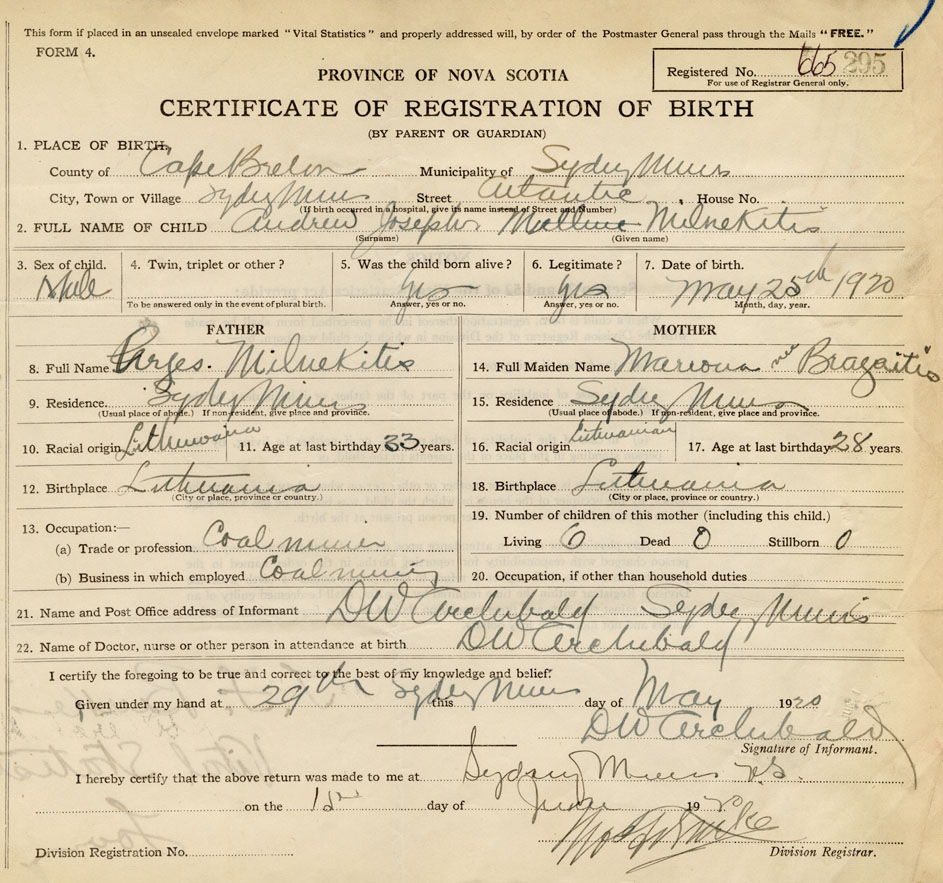 This form if placed in an unsealed envelope marked "Vital Statistics" and properly addressed will, by order of the Postmaster General pass through the Mails "FREE."
FORM 4.
PROVINCE OF NOVA SCOTIA
Registered No. 665 295
For use of Registrar General only.
CERTIFICATE OF REGISTRATION OF BIRTH
(BY PARENT OR GUARDIAN)
1. PLACE OF BIRTH,
County of Cape Breton Municipality of Sydney Mines
City, Town or Village Sydney Mines Street Atlantic House No.
(If birth occurred in a hospital, give its name instead of Street and Number)
2. FULL NAME OF CHILD Andrew Joseph Milnekitis
(Surname) (Given name)
3. Sex of child. 4. Twin, triplet or other? 5. Was the child born alive? 6. Legitimate? 7. Date of birth.
Male Yes Yes May 25th 1920
To be answered only in the event of plural birth. Answer, yes or no. Answer, yes or no. Month, day, year.
FATHER MOTHER
8. Full Name Milnekitis 14. Full Maiden Name nee Bragaitis
9. Residence Sydney Mines 15. Residence Sydney Mines
(Usual place of abode.) If non-resident, give place and province. (Usual place of abode.) If non-resident, give place and province.
10. Racial origin 11. Age at last birthday 33 years. 16. Racial origin Lithuanian 17. Age at last birthday 28 years.
12. Birthplace Lithuania 18. Birthplace Lithuania
(City or place, province or country.) (City or place, province or country.)
13. Occupation:— 19. Number of children of this mother (including this child.)
(a) Trade or profession Coal miner Living 6 Dead 0 Stillborn 0
(b) Business in which employed Coal mining 20. Occupation, if other than household duties
21. Name and Post Office address of Informant DW Archibald Sydney Mines
22. Name of Doctor, nurse or other person in attendance at birth DW Archibald
I certify the foregoing to be true and correct to the best of my knowledge and belief.
Given under my hand at 29th Sydney Mines this day of May 1920
DW Archibald
Signature of Informant.
I hereby certify that the above return was made to me at Sydney Mines N.S.
on the day of June 1920
Division Registration No. Division Registrar.